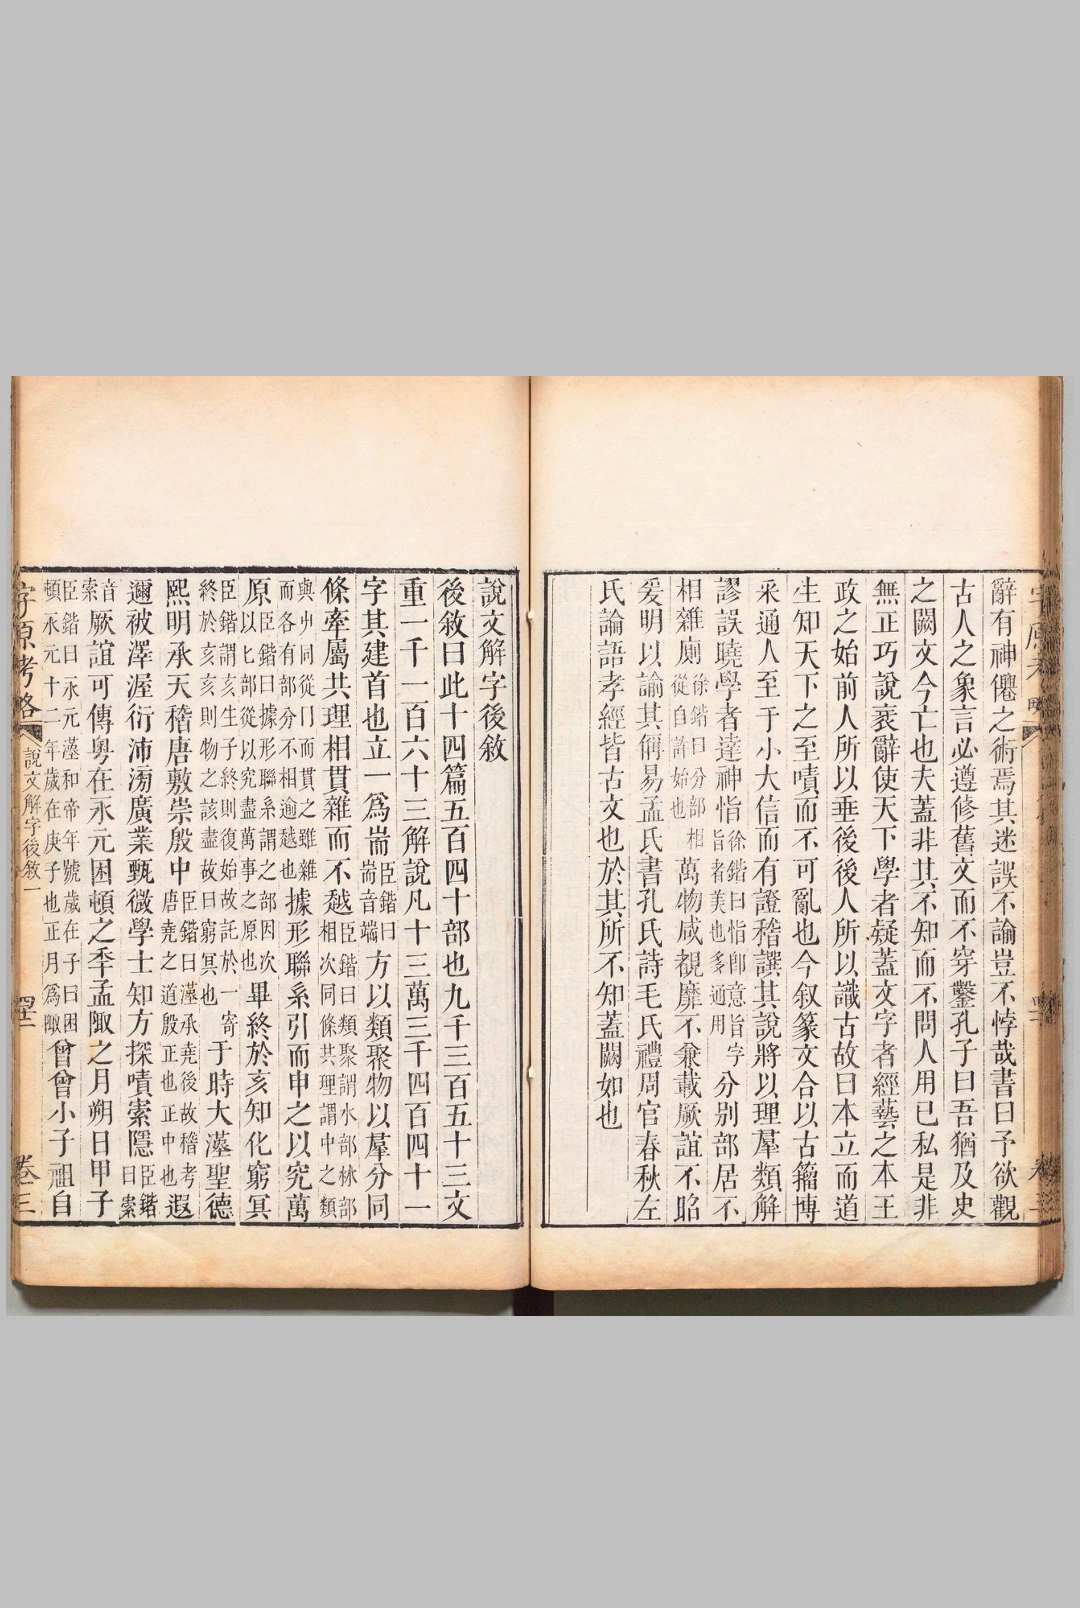 辭有神僊之術焉其迷誤不論豈不悖哉書曰予欲觀
古人之象言必遵修舊文而不穿鑿孔子曰吾猶及史
之闕文今亡也夫蓋非其不知而不問人用己私是非
無正巧說衺辭使天下學者疑蓋文字者經藝之本王
政之始前人所以垂後後人所以識古故曰本立而道
生知天下之至嘖而不可亂也今叙篆文合以古籀博
采通人至于小大信而有證稽譔其說將以理羣類解
謬誤曉學者達神恉徐鍇曰恉卽意旨字旨者美也多通用分別部居不
相雜廁徐鍇曰分部相從自許始也萬物咸覩靡不兼載厥誼不昭
爰明以諭其稱易孟氏書孔氏詩毛氏禮周官春秋左
氏論語孝經皆古文也於其所不知蓋闕如也
說文解字後敘
後敘曰此十四篇五百四十部也九千三百五十三文
重一千一百六十三解說凡十三萬三千四百四十一
字其建首也立一爲耑臣鍇曰耑音端方以類聚物以羣分同
條牽屬共理相貫雜而不越臣鍇曰類聚謂水部林部相次同條共理謂中之類
與屮同從冂而貫之雖雜而各有部分不相逾越也據形聯系引而申之以究萬
原臣鍇曰據形聯系謂之部因次以匕部從以究盡萬事之原也畢終於亥知化窮冥
臣鍇謂亥生子終則復始故託於一寄終於亥亥則物之該盡故曰窮冥也于時大漢聖德
熙明承天稽唐敷崇殷中臣鍇曰漢承堯後故稽考唐堯之道殷正也正中也遐
邇被澤渥衍沛滂廣業甄微學士知方探嘖索隱臣鍇曰索
音索厥誼可傳粵在永元困頓之季孟陬之月朔日甲子
臣鍇曰永元漢和帝年號歲在子曰困頓永元十二年歲在庚子也正月爲陬曾曾小子祖自
字原考略 說文解字後敘一 卷三